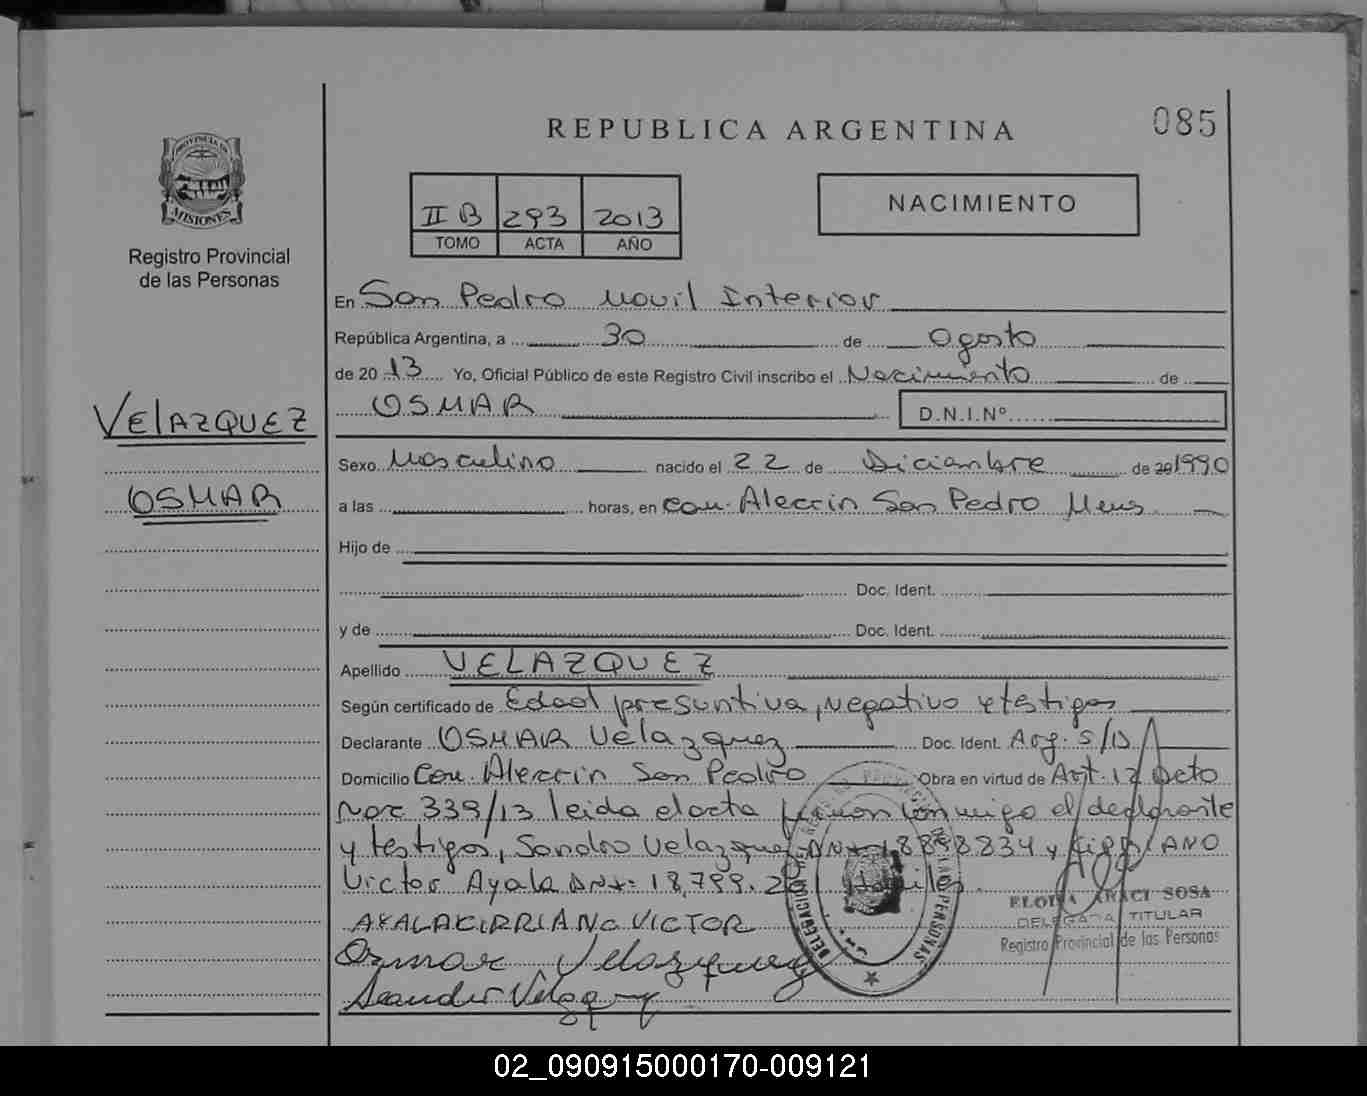 085
REPUBLICA ARGENTINA
PROVINCIA DE
MISIONES
Registro Provincial
de las Personas
II B 293 2013
TOMO ACTA AÑO
NACIMIENTO
En San Pedro Movil Interior
República Argentina, a 30 de agosto
de 2013 Yo, Oficial Público de este Registro Civil inscribo el Nacimiento de
VElAZQUEZ
OSMAR D.N.I.Nº
Sexo Masculino nacido el 22 de Diciembre de 20 1990
OSMAR
a las horas, en Com. Alecrin San Pedro Mnes
Hijo de
Doc. Ident.
y de Doc. Ident.
Apellido VELAZQUEZ
Según certificado de Edad presuntiva, negativo y testigos
Declarante OSMAR Velazquez Doc. Ident. Arg. S/D
Domicilio Com. Alecrin San Pedro Obra en virtud de Art. 12 Dcto
Nac 339/13 leida el acta firman conmigo el declarante
y testigos, Sandro Velazquez 18898834 y CIRRIANO
Victor Ayala DNI: 18,799.
ELOISA ARACI SOSA
DELEGADA TITULAR
Registro Provincial de las Personas
AYALA CIRRIANO VICTOR
Osmar Velazquez
DELEGACION
DE LAS PERSONAS
02_090915000170-009121